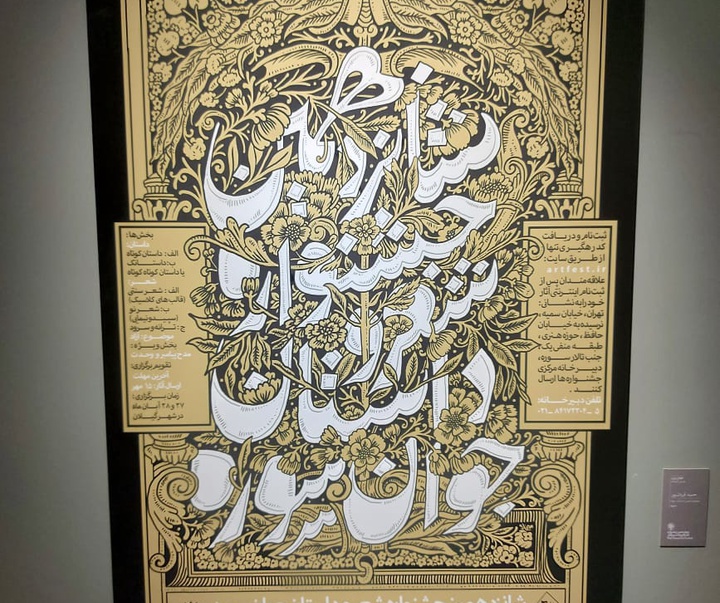 شانزدهمین
جشنواره
شعر و
داستان
جوان سوره
ثبت‌نام و دریافت
کد رهگیری تنها
از طریق سایت:
artfest.ir
علاقه‌مندان پس از
ثبت‌نام اینترنتی آثار
خود را به نشانی:
تهران، خیابان سمیه،
نرسیده به خیابان
حافظ، حوزه هنری،
طبقه منفی یک،
جنب تالار سوره،
دبیرخانه مرکزی
جشنواره‌ها ارسال
کنند.
تلفن دبیرخانه:
۰۲۱-۸۴۱۷۲۳۰۴-۵
بخش‌ها:
داستان:
الف: داستان کوتاه
ب: داستانک
یا داستان کوتاه کوتاه
شعر:
الف: شعر سنتی
(قالب‌های کلاسیک)
ب: شعر نو
(سپید و نیمایی)
ج: ترانه و سرود
موضوع: آزاد
بخش ویژه:
مدح پیامبر و وحدت
تقویم برگزاری:
آخرین مهلت
ارسال آثار: ۱۵ مهر
زمان برگزاری:
۲۷ و ۲۸ آبان ماه
در شهر گیلان